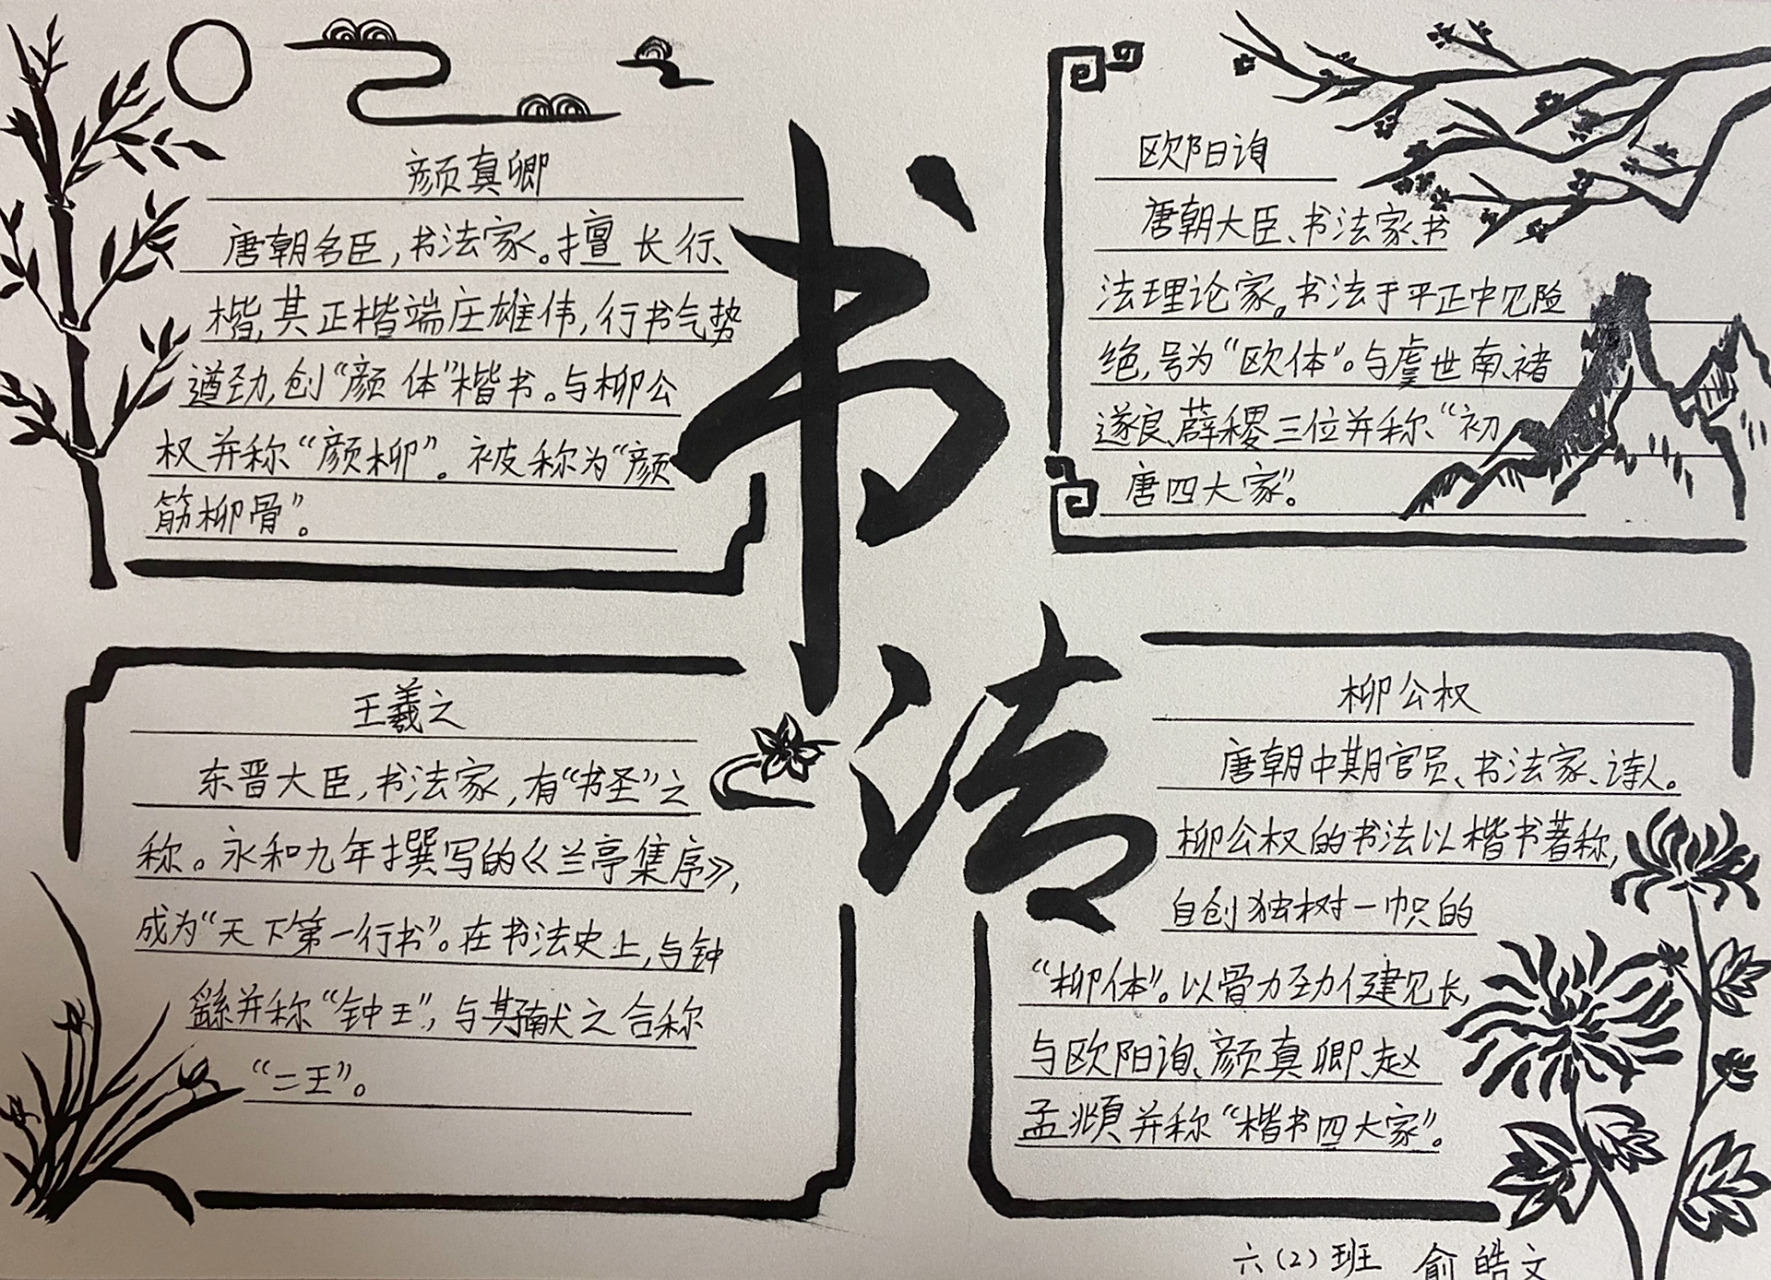 书法
颜真卿
唐朝名臣,书法家。擅长行、
楷,其正楷端庄雄伟,行书气势
遒劲,创“颜体”楷书。与柳公
权并称“颜柳”。被称为“颜
筋柳骨”。
欧阳询
唐朝大臣、书法家、书
法理论家。书法于平正中见险
绝,号为“欧体”。与虞世南、褚
遂良、薛稷三位并称“初
唐四大家”。
王羲之
东晋大臣,书法家,有“书圣”之
称。永和九年撰写的《兰亭集序》,
成为“天下第一行书”。在书法史上,与钟
繇并称“钟王”,与其子献之合称
“二王”。
柳公权
唐朝中期官员、书法家、诗人。
柳公权的书法以楷书著称,
自创独树一帜的
“柳体”。以骨力劲健见长,
与欧阳询、颜真卿、赵
孟頫并称“楷书四大家”。
六(2)班 俞皓文